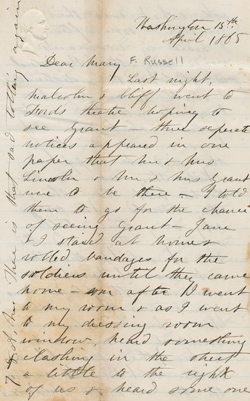 Washington 15th
April 1865
Dear Mary F. Russell
Last night,
Malcolm & Cliff went to
Fords theatre hoping to
see Grant three separate
notices appeared in one
paper that Mr & Mrs
Lincoln & Mr & Mrs Grant
were to be there – I told
them to go for the chance
of seeing Grant – Jane
& I staid at home &
rolled bandages for the
soldiers until they came
home – soon after 10 went
to my room & as I went
to my dressing room
window, heard something
clashing in the street
a little to the right
of us & heard some one
There is that sad tolling again